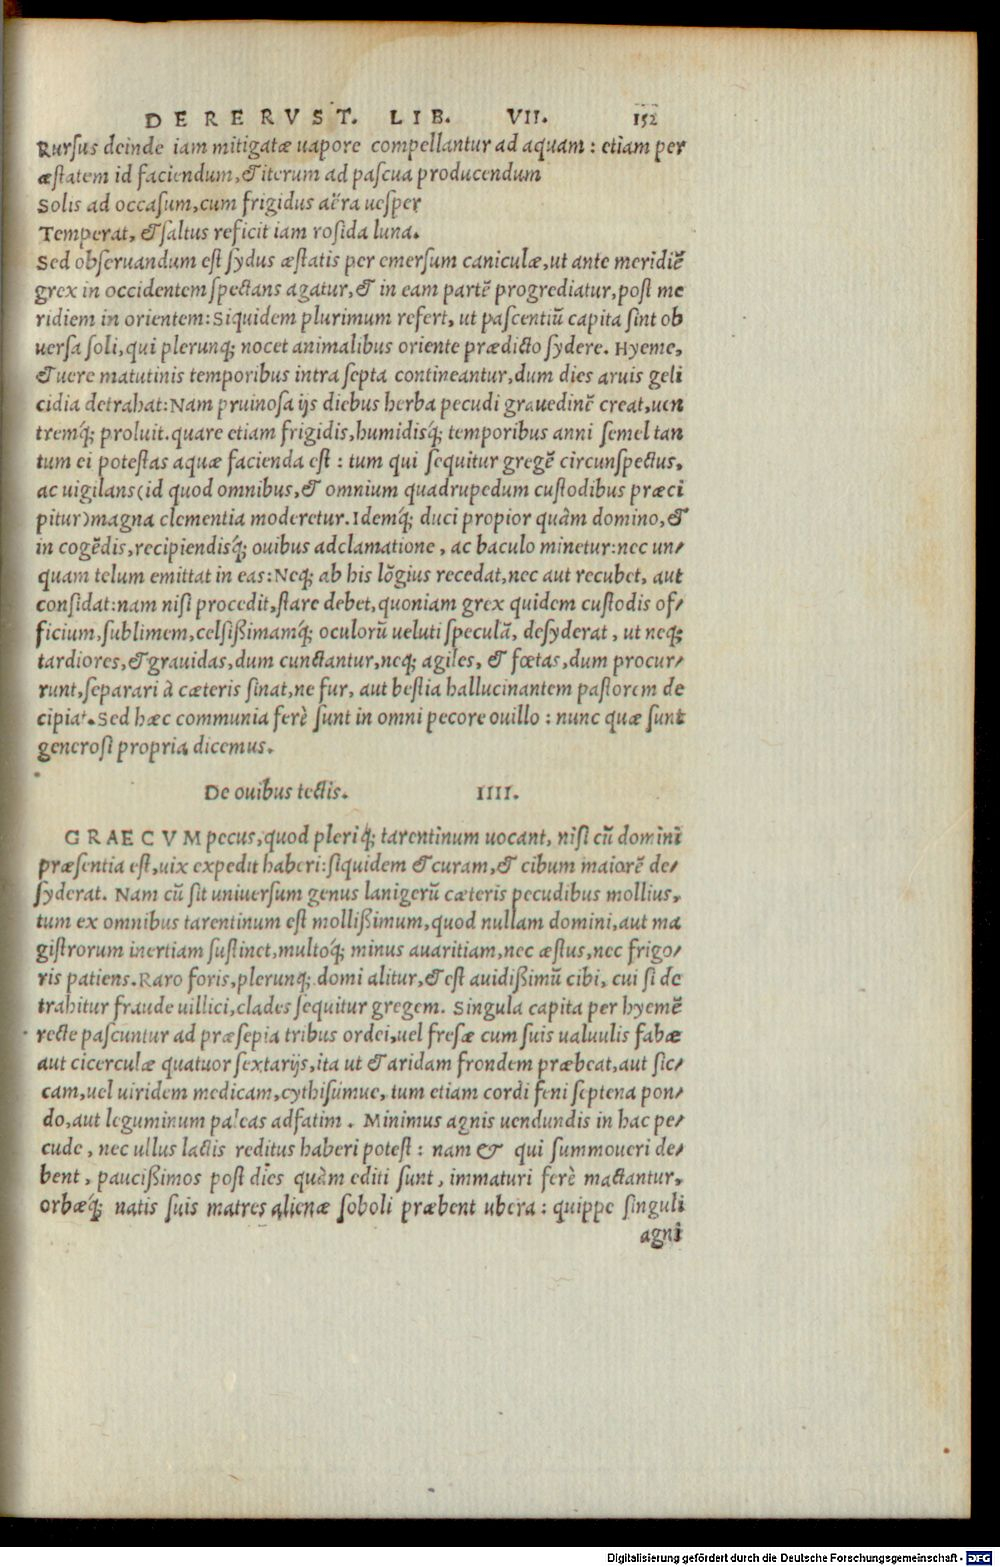 DE RE RVST. LIB. VII. 152
Rursus deinde iam mitigatæ uapore compellantur ad aquam: etiam per
æstatem id faciendum, & iterum ad pascua producendum
Solis ad occasum, cum frigidus aëra uesper
Temperat, & saltus reficit iam rosida luna.
Sed obseruandum est sydus æstatis per emersum caniculæ, ut ante meridiẽ
grex in occidentem spectans agatur, & in eam partẽ progrediatur, post me
ridiem in orientem: Siquidem plurimum refert, ut pascentiũ capita sint ob
uersa soli, qui plerunq; nocet animalibus oriente prædicto sydere. Hyeme,
& uere matutinis temporibus intra septa contineantur, dum dies aruis geli
cidia detrahat: Nam pruinosa ijs diebus herba pecudi grauedinẽ creat, uen
tremq́; proluit. quare etiam frigidis, humidisq́; temporibus anni semel tan
tum ei potestas aquæ facienda est: tum qui sequitur gregẽ circunspectus,
ac uigilans (id quod omnibus, & omnium quadrupedum custodibus præci
pitur) magna clementia moderetur. Idemq́; duci propior quàm domino, &
in cogẽdis, recipiendisq́; ouibus adclamatione, ac baculo minetur: nec un/
quam telum emittat in eas: Neq; ab his lõgius recedat, nec aut recubet, aut
considat: nam nisi procedit, stare debet, quoniam grex quidem custodis of/
ficium, sublimem, celsißimamq́; oculorũ ueluti speculã, desyderat, ut neq;
tardiores, & grauidas, dum cunctantur, neq; agiles, & fœtas, dum procur/
runt, separari à cæteris sinat, ne fur, aut bestia hallucinantem pastorem de
cipiat. Sed hæc communia ferè sunt in omni pecore ouillo: nunc quæ sunt
generosi propria dicemus.
De ouibus tectis. IIII.
GRAECVM pecus, quod pleriq; tarentinum uocant, nisi cũ domini
præsentia est, uix expedit haberi: siquidem & curam, & cibum maiorẽ de/
syderat. Nam cũ sit uniuersum genus lanigerũ cæteris pecudibus mollius,
tum ex omnibus tarentinum est mollißimum, quod nullam domini, aut ma
gistrorum inertiam sustinet, multoq́; minus auaritiam, nec æstus, nec frigo/
ris patiens. Raro foris, plerunq; domi alitur, & est auidißimũ cibi, cui si de
trahitur fraude uillici, clades sequitur gregem. Singula capita per hyemẽ
recte pascuntur ad præsepia tribus ordei, uel fresæ cum suis ualuulis fabæ
aut cicerculæ quatuor sextarijs, ita ut & aridam frondem præbeat, aut sic/
cam, uel uiridem medicam, cythisúmue, tum etiam cordi feni septena pon/
do, aut leguminum paleas adfatim. Minimus agnis uendundis in hac pe/
cude, nec ullus lactis reditus haberi potest: nam & qui summoueri de/
bent, paucißimos post dies quàm editi sunt, immaturi ferè mactantur,
orbæq́; natis suis matres alienæ soboli præbent ubera: quippe singuli
agni
Digitalisierung gefördert durch die Deutsche Forschungsgemeinschaft - DFG